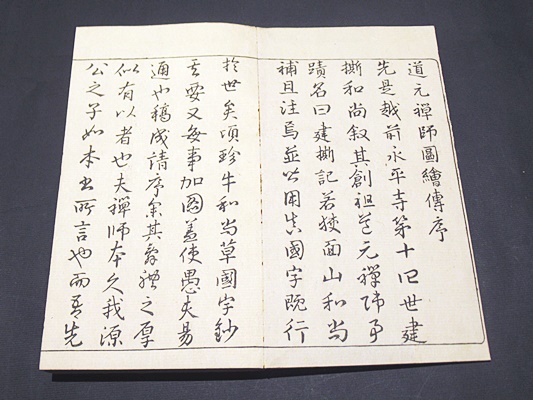 道元禪師圖繪傳序
先是越前永平寺第十四世建
撕和尚叙其創祖道元禪師事
蹟名曰建撕記若狭面山和尚
補且注焉並用國字既行
於世矣頃珍牛和尚草國字鈔
其要又每事加圖蓋使愚夫易
通也稿成請序余其辭禮之厚
似有以者也夫禪師本久我源
公之子如本書所言也而吾先